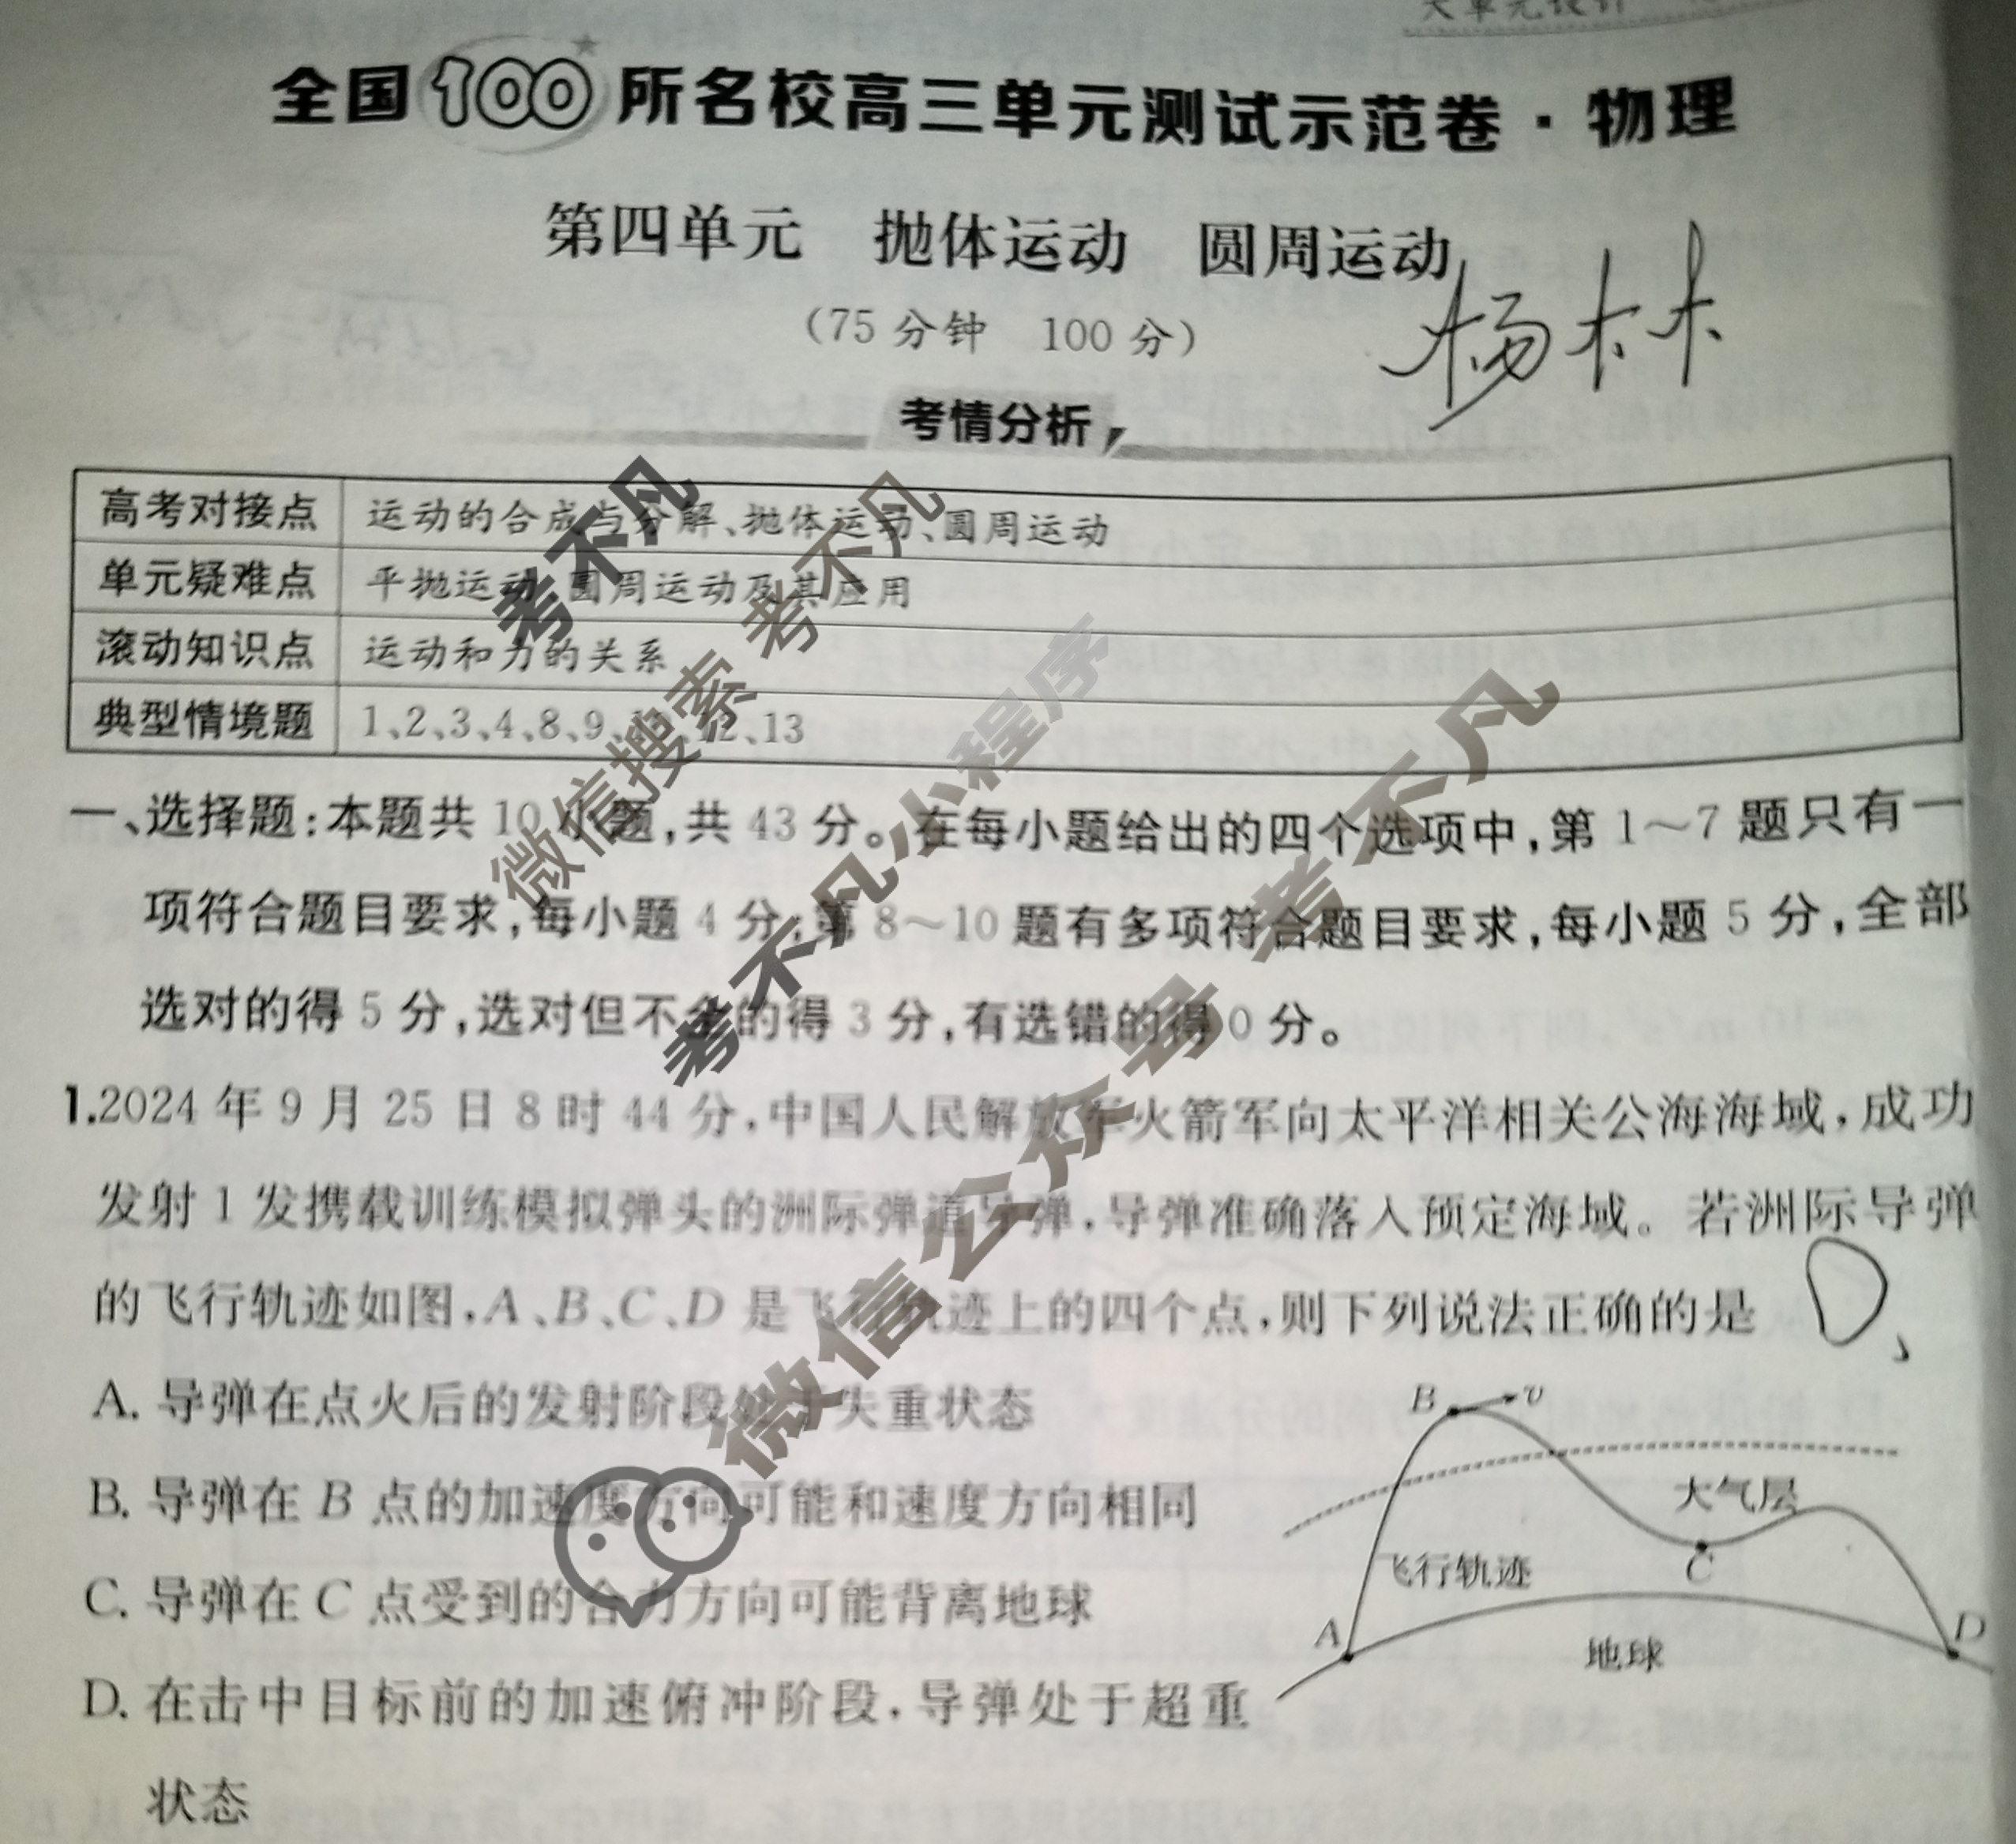 大单元设计
全国100所名校高三单元测试示范卷·物理
第四单元 抛体运动 圆周运动
(75分钟 100分)
杨林
考情分析
高考对接点 运动的合成与分解、抛体运动、圆周运动
单元疑难点 平抛运动、圆周运动及其应用
滚动知识点 运动和力的关系
典型情境题 1、2、3、4、8、9、11、12、13
一、选择题:本题共10小题,共43分。在每小题给出的四个选项中,第1~7题只有一
项符合题目要求,每小题4分;第8~10题有多项符合题目要求,每小题5分,全部
选对的得5分,选对但不全的得3分,有选错的得0分。
1.2024年9月25日8时44分,中国人民解放军火箭军向太平洋相关公海海域,成功
发射1发携载训练模拟弹头的洲际弹道导弹,导弹准确落入预定海域。若洲际导弹
的飞行轨迹如图,A、B、C、D是飞行轨迹上的四个点,则下列说法正确的是
A. 导弹在点火后的发射阶段处于失重状态
B. 导弹在B点的加速度方向可能和速度方向相同
C. 导弹在C点受到的合力方向可能背离地球
D. 在击中目标前的加速俯冲阶段,导弹处于超重
状态
B v
大气层
飞行轨迹
C
A
D
地球
考不凡
微信搜索 考不凡
考不凡小程序
微信公众号 考不凡